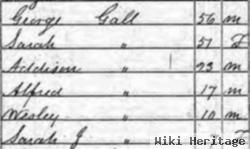 George Gall 56 m
Sarah " 51 F
Addison " 23 m
Alfred " 17 m
Wesley " 10 m
Sarah J "
Wiki Heritage